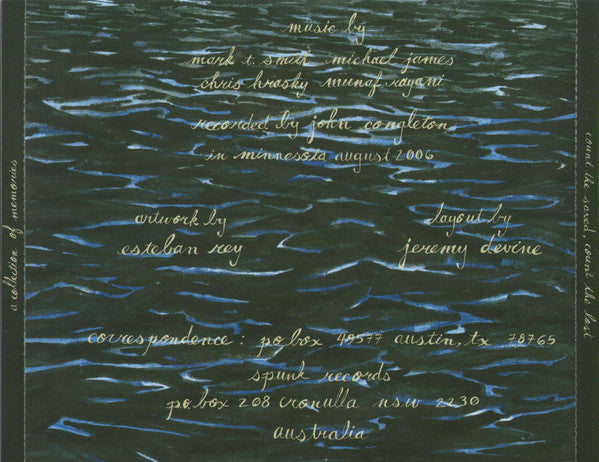 music by
mark t. smith michael james
chris hrasky munaf rayani
recorded by john congleton
in minnesota august 2006
artwork by
esteban rey
layout by
jeremy devine
correspondence : po. box 49577 austin, tx 78765
spunk records
po. box 208 cronulla nsw 2230
australia
a collection of memories
count the saved, count the lost